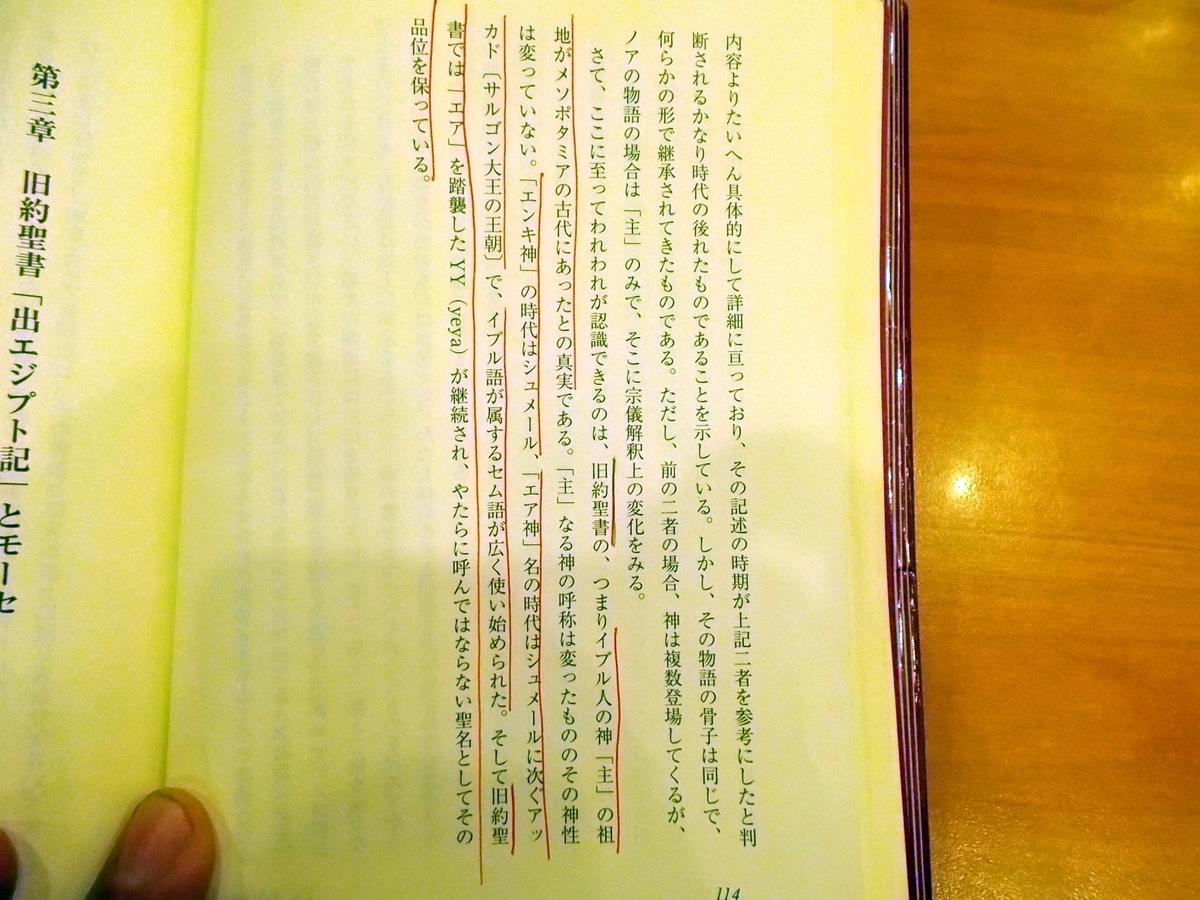 内容よりたいへん具体的にして詳細に亘っており、その記述の時期が上記二者を参考にしたと判
断されるかなり時代の後れたものであることを示している。しかし、その物語の骨子は同じで、
何らかの形で継承されてきたものである。ただし、前の二者の場合、神は複数登場してくるが、
ノアの物語の場合は「主」のみで、そこに宗儀解釈上の変化をみる。
さて、ここに至ってわれわれが認識できるのは、旧約聖書の、つまりイブル人の神「主」の祖
地がメソポタミアの古代にあったとの真実である。「主」なる神の呼称は変ったもののその神性
は変っていない。「エンキ神」の時代はシュメール、「エア神」名の時代はシュメールに次ぐアッ
カド〔サルゴン大王の王朝〕で、イブル語が属するセム語が広く使い始められた。そして旧約聖
書では「エア」を踏襲したYY（yeya）が継続され、やたらに呼んではならない聖名としてその
品位を保っている。
114
第三章　旧約聖書「出エジプト記」とモーセ